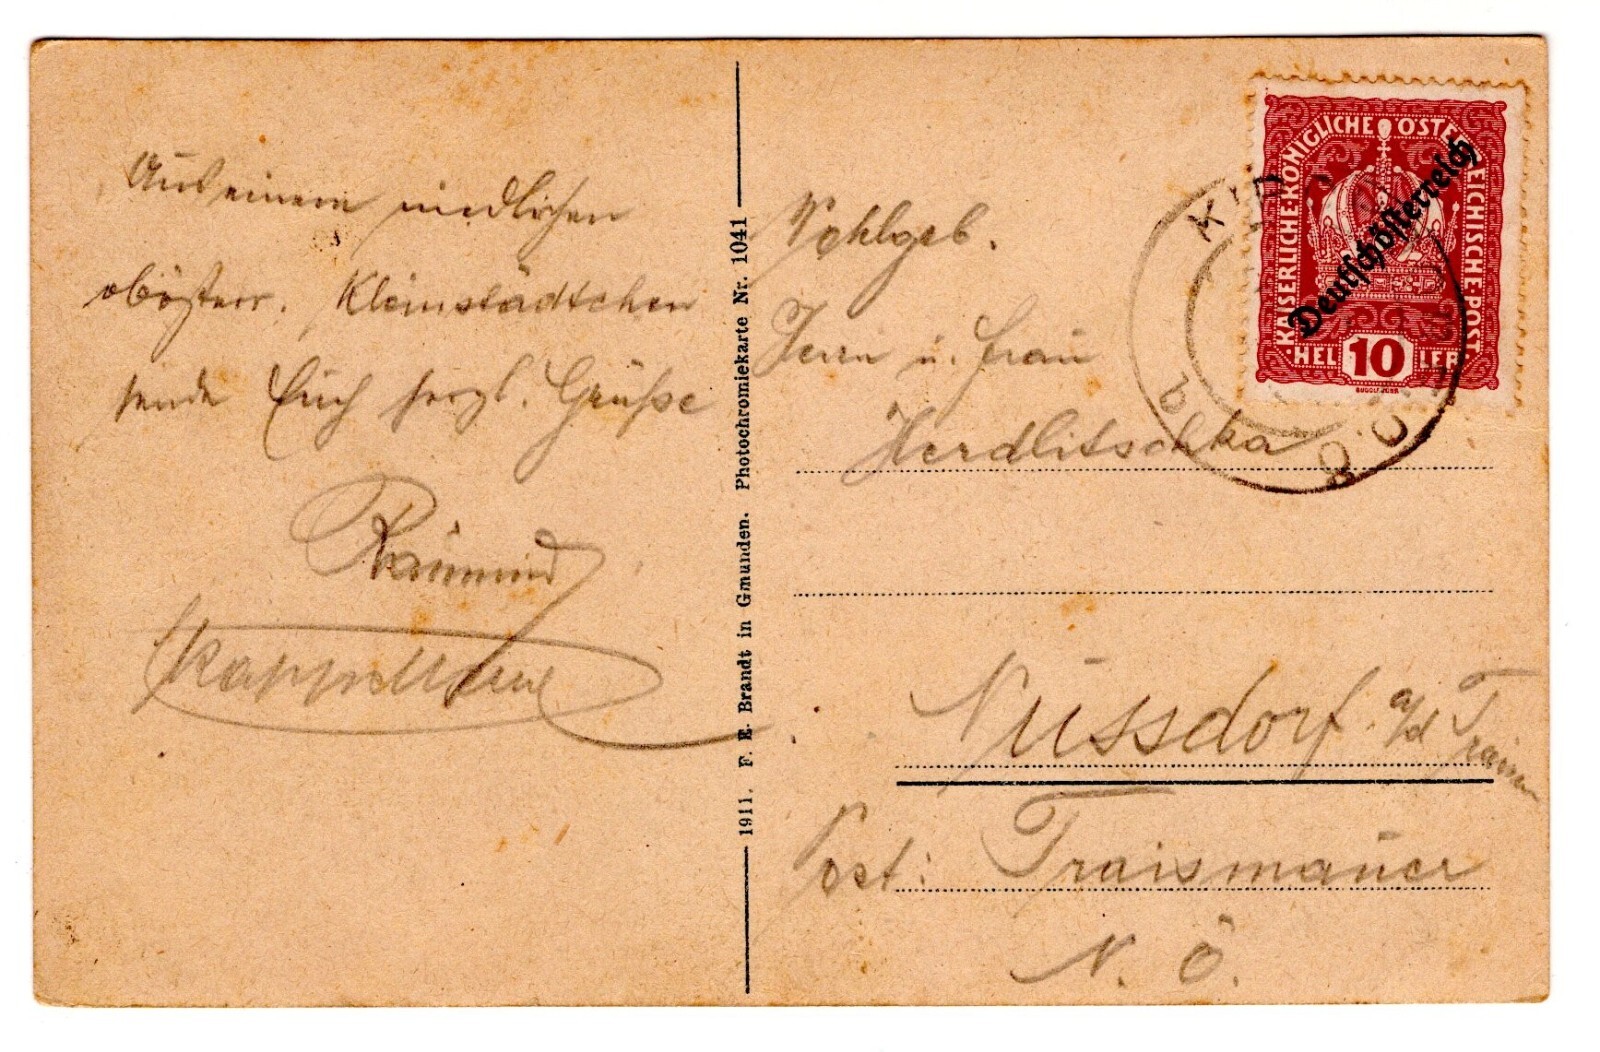 Aus einem niedlichen
oböstерr. Kleinstädtchen
sende Euch herzl. Grüße
Raimund
1911. F. E. Brandt in Gmunden. Photochromiekarte Nr. 1041
Wohlgeb.
Herrn u. Frau
Herdlitschka
Nussdorf a/d Traisen
Post: Traismauer
N. Ö.
KAISERLICHE·KÖNIGLICHE ÖSTERREICHISCHE·POST
Deutschösterreich
HELLER
10